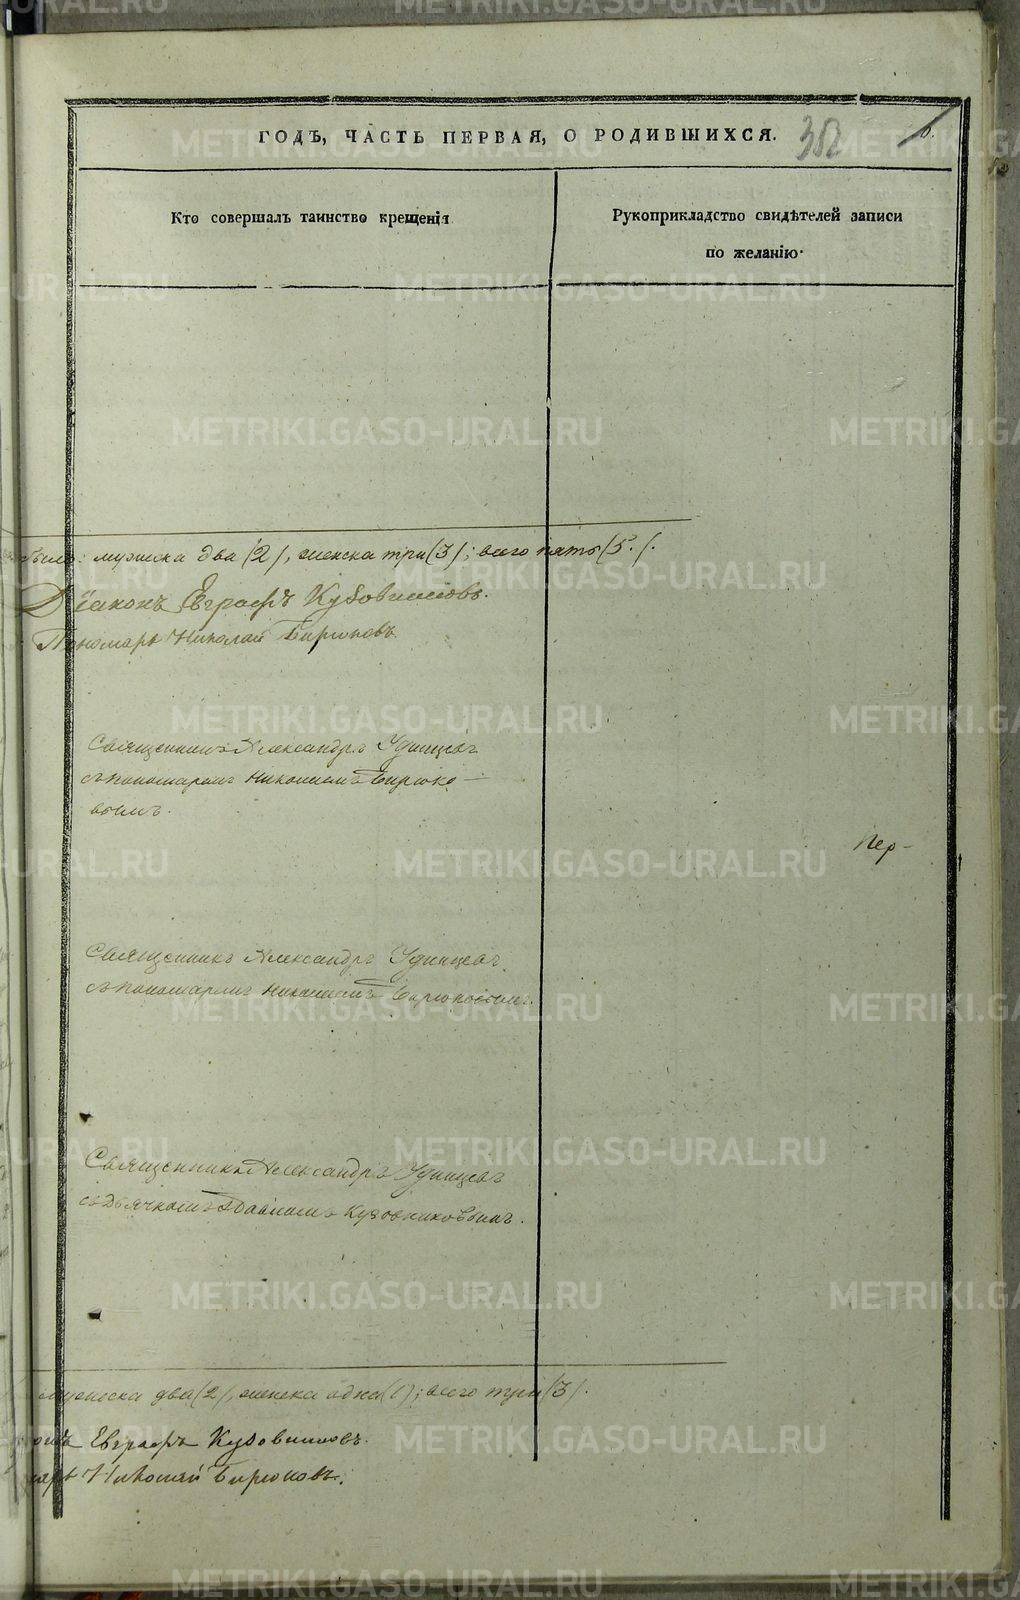 ГОДЪ, ЧАСТЬ ПЕРВАЯ, О РОДИВШИХСЯ. 352
Кто совершалъ таинство крещенія
Рукоприкладство свидѣтелей записи
по желанію
было: мужеска два (2), женска три (3); всего пять (5.).
Діаконъ Евграфъ Кубовиковъ.
Пономарь Николай Бирюковъ
Священникъ Александръ Удинцевъ
съ пономаремъ Николаемъ Бирюко-
вымъ.
Пер-
Священникъ Александръ Удинцевъ
съ пономаремъ Николаемъ Бирюковымъ.
Священникъ Александръ Удинцевъ
съ дьячкомъ Павломъ
мужеска два (2), женска одна (1); всего три (3).
Евграфъ
Николай Бирюковъ.
METRIKI.GASO-URAL.RU